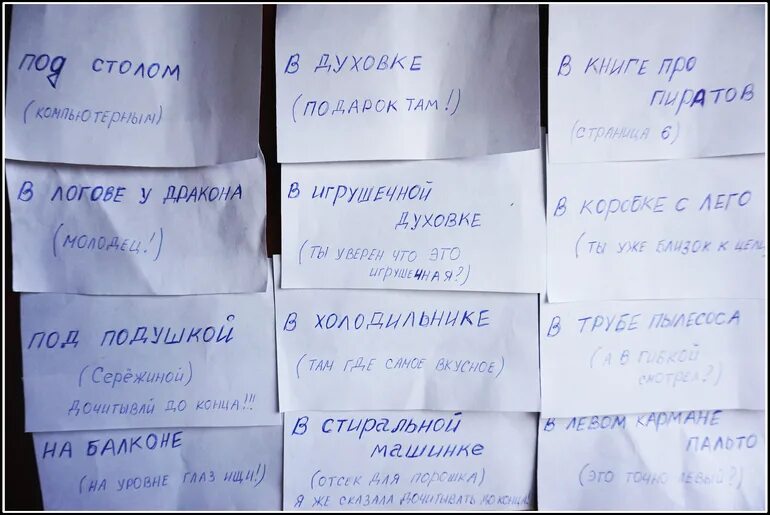 ПОД СТОЛОМ
(КОМПЬЮТЕРНЫМ)
В ДУХОВКЕ
(ПОДАРОК ТАМ!)
В КНИГЕ ПРО
ПИРАТОВ
(СТРАНИЦА 6)
В ЛОГОВЕ У ДРАКОНА
(МОЛОДЕЦ!)
В ИГРУШЕЧНОЙ
ДУХОВКЕ
(ТЫ УВЕРЕН ЧТО ЭТО
ИГРУШЕЧНАЯ?)
В КОРОБКЕ С ЛЕГО
(ТЫ УЖЕ БЛИЗОК К ЦЕЛИ
ПОД ПОДУШКОЙ
(СЕРЁЖИНОЙ)
ДОЧИТЫВАЙ ДО КОНЦА!!!
В ХОЛОДИЛЬНИКЕ
(ТАМ ГДЕ САМОЕ ВКУСНОЕ)
В ТРУБЕ ПЫЛЕСОСА
(А В ГИБКОЙ
СМОТРЕЛ?)
НА БАЛКОНЕ
(НА УРОВНЕ ГЛАЗ ИЩИ!)
В СТИРАЛЬНОЙ
МАШИНКЕ
(ОТСЕК ДЛЯ ПОРОШКА)
Я ЖЕ СКАЗАЛА ДОЧИТЫВАТЬ ДО КОНЦА
В ЛЕВОМ КАРМАНЕ
ПАЛЬТО
(ЭТО ТОЧНО ЛЕВЫЙ?)